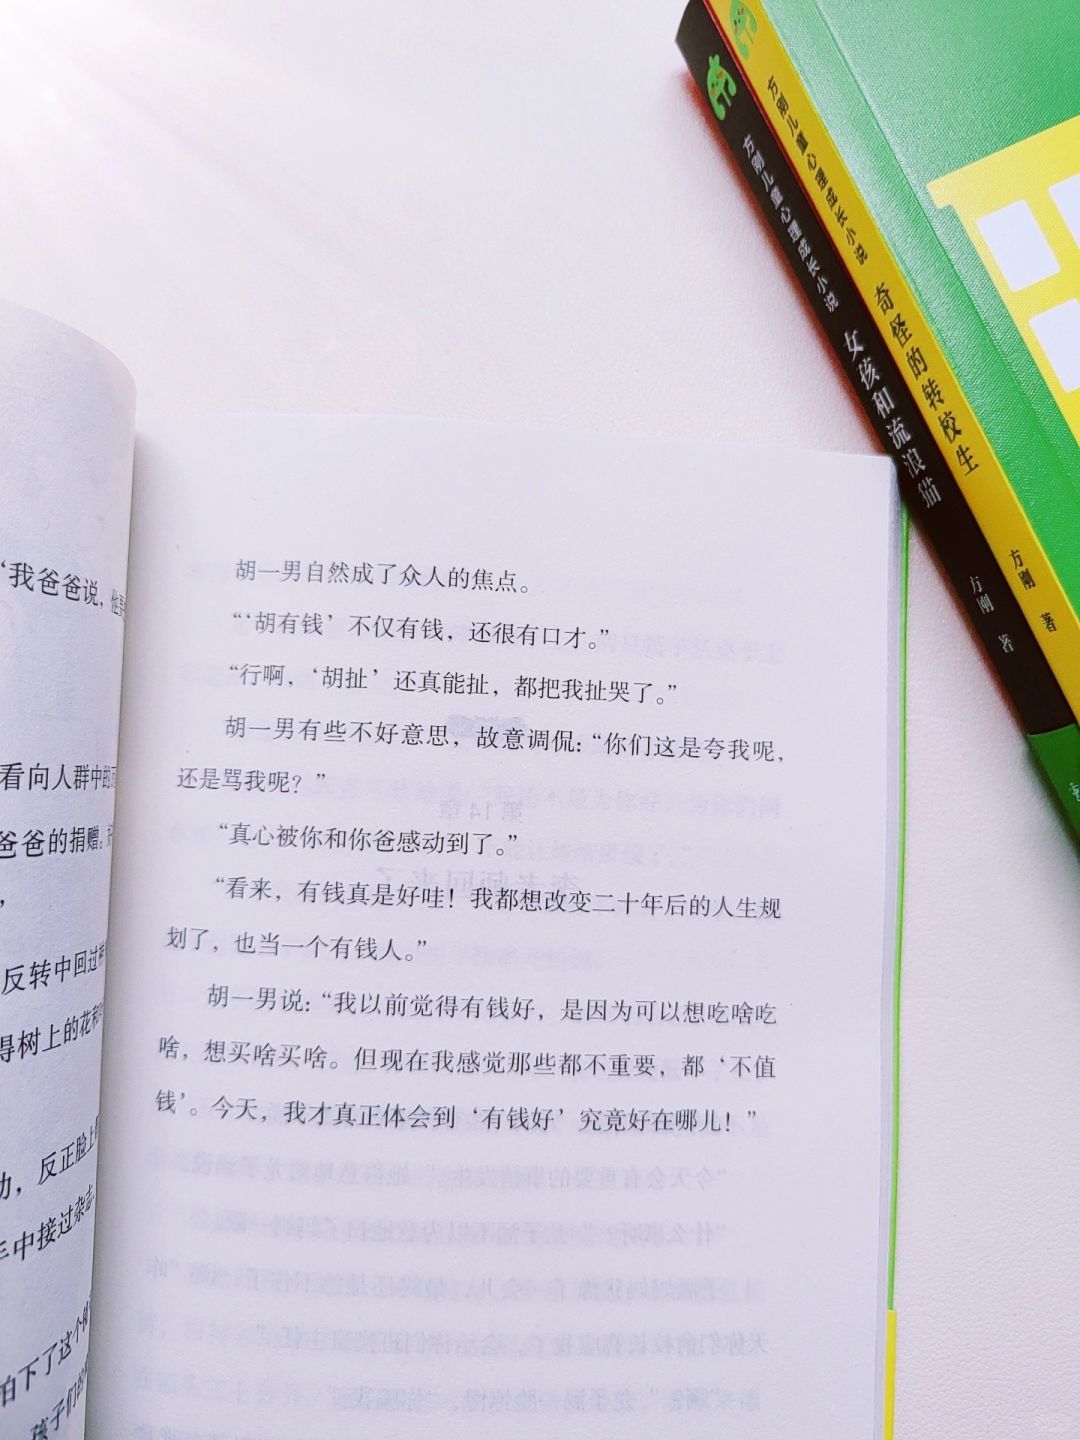 方刚儿童心理成长小说 奇怪的转校生 方刚 著
方刚儿童心理成长小说 女孩和流浪猫 方刚 著
‘我爸爸说，他
看向人群中的
爸爸的捐赠。
反转中回过神
得树上的花和
力，反正脸上
中接过杂志
拍下了这个
孩子们的
胡一男自然成了众人的焦点。
“‘胡有钱’不仅有钱，还很有口才。”
“行啊，‘胡扯’还真能扯，都把我扯哭了。”
胡一男有些不好意思，故意调侃：“你们这是夸我呢，
还是骂我呢？”
“真心被你和你爸感动到了。”
“看来，有钱真是好哇！我都想改变二十年后的人生规
划了，也当一个有钱人。”
胡一男说：“我以前觉得有钱好，是因为可以想吃啥吃
啥，想买啥买啥。但现在我感觉那些都不重要，都‘不值
钱’。今天，我才真正体会到‘有钱好’究竟好在哪儿！”